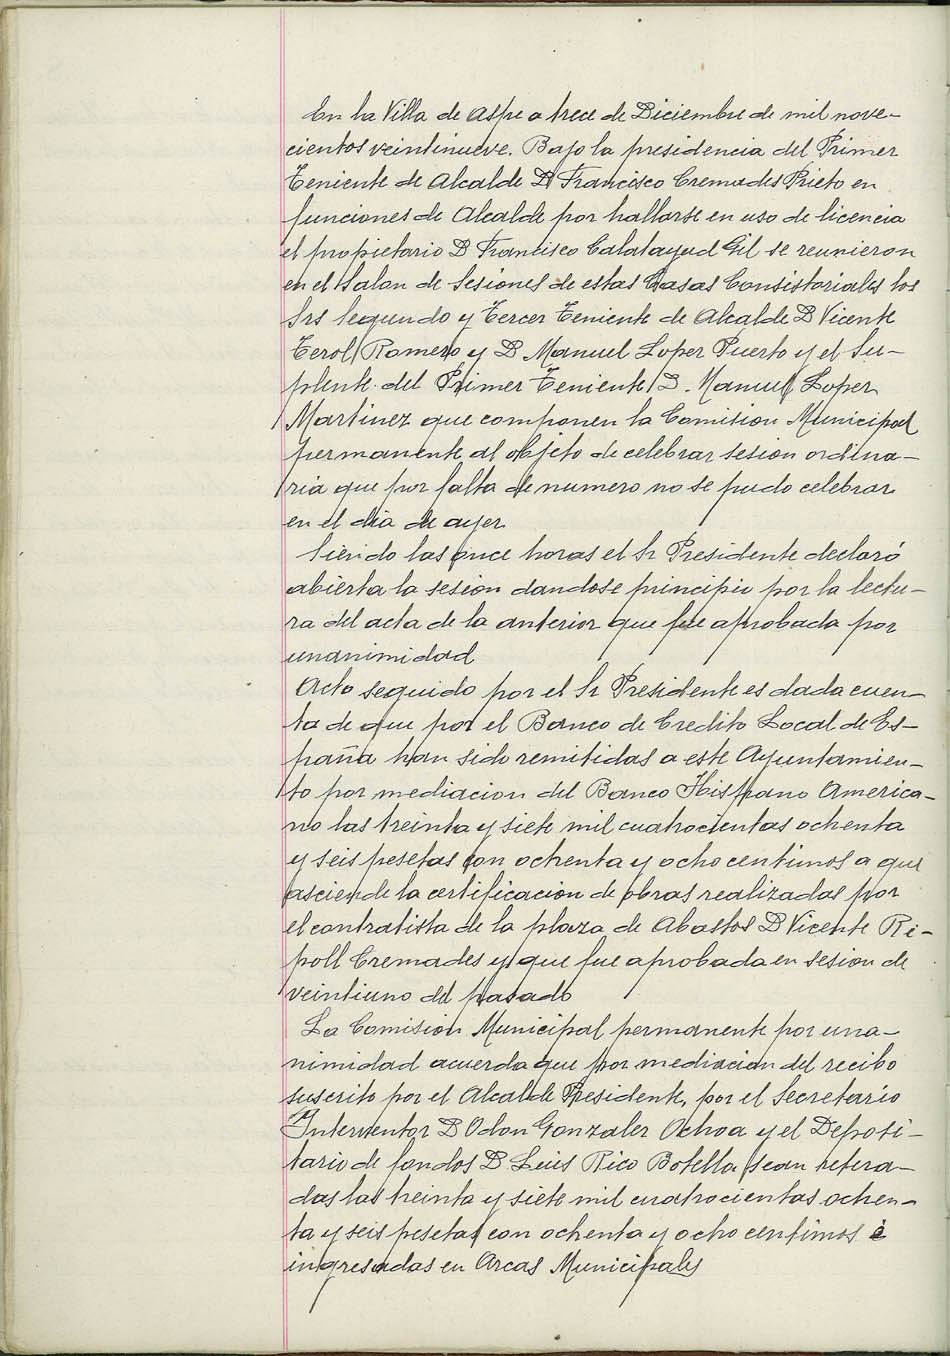 En la Villa de Aspe a trece de Diciembre de mil nove-
cientos veintinueve. Bajo la presidencia del Primer
Teniente de Alcalde D Francisco Cremades Prieto en
funciones de Alcalde por hallarse en uso de licencia
el propietario D Francisco Calatayud Gil se reunieron
en el Salon de Sesiones de estas Casas Consistoriales los
Srs Segundo y Tercer Teniente de Alcalde D Vicente
Terol Romero y D Manuel Lopez Puerto y el Su-
plente del Primer Teniente D. Manuel Lopez
Martinez que componen la Comision Municipal
permanente al objeto de celebrar sesion ordina-
ria que por falta de numero no se pudo celebrar
en el dia de ayer
Siendo las once horas el Sr Presidente declaró
abierta la sesion dandose principio por la lectu-
ra del acta de la anterior que fue aprobada por
unanimidad
Acto seguido por el Sr Presidente es dada cuen-
ta de que por el Banco de Credito Local de Es-
paña han sido remitidas a este Ayuntamien-
to por mediacion del Banco Hispano America-
no las treinta y siete mil cuatrocientas ochenta
y seis pesetas con ochenta y ocho centimos a que
asciende la certificacion de obras realizadas por
el contratista de la plaza de Abastos D Vicente Ri-
poll Cremades y que fue aprobada en sesion de
veintiuno del pasado
La Comision Municipal permanente por una-
nimidad acuerda que por mediacion del recibo
suscrito por el Alcalde Presidente, por el Secretario
Interventor D Odon Gonzalez Ochoa y el Deposi-
tario de fondos D Luis Rico Botella sean retira-
das las treinta y siete mil cuatrocientas ochen-
ta y seis pesetas con ochenta y ocho centimos é
ingresadas en Arcas Municipales